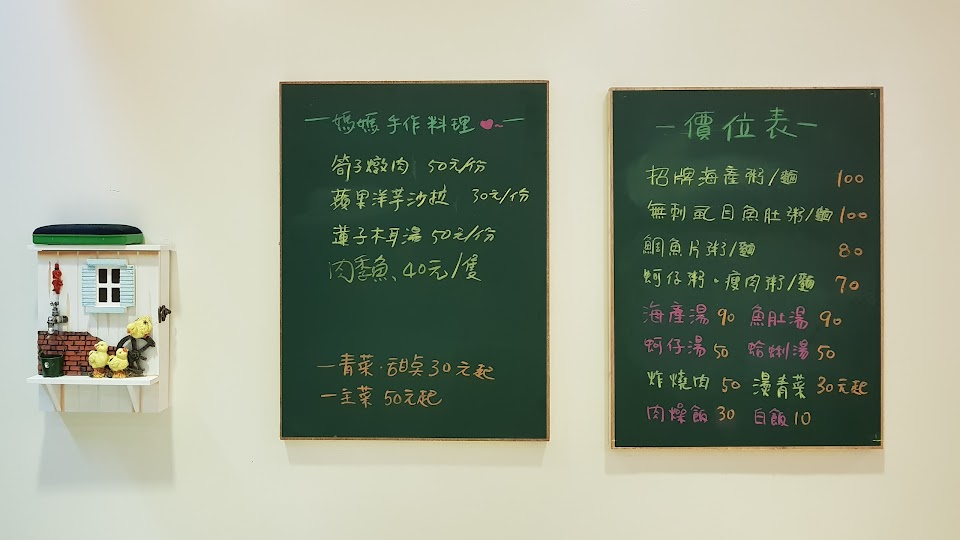 一媽媽手作料理❤~一
筍子燉肉 50元/份
蘋果洋芋沙拉 30元/份
蓮子木耳湯 50元/份
肉魚、40元/隻
一青菜·甜点30元起
一主菜 50元起
一價位表一
招牌海產粥/麵 100
無刺虱目魚肚粥/麵 100
鯛魚片粥/麵 80
蚵仔粥·瘦肉粥/麵 70
海產湯 90 魚肚湯 90
蚵仔湯 50 蛤蜊湯 50
炸燒肉 50 燙青菜 30元起
肉燥飯 30 白飯 10